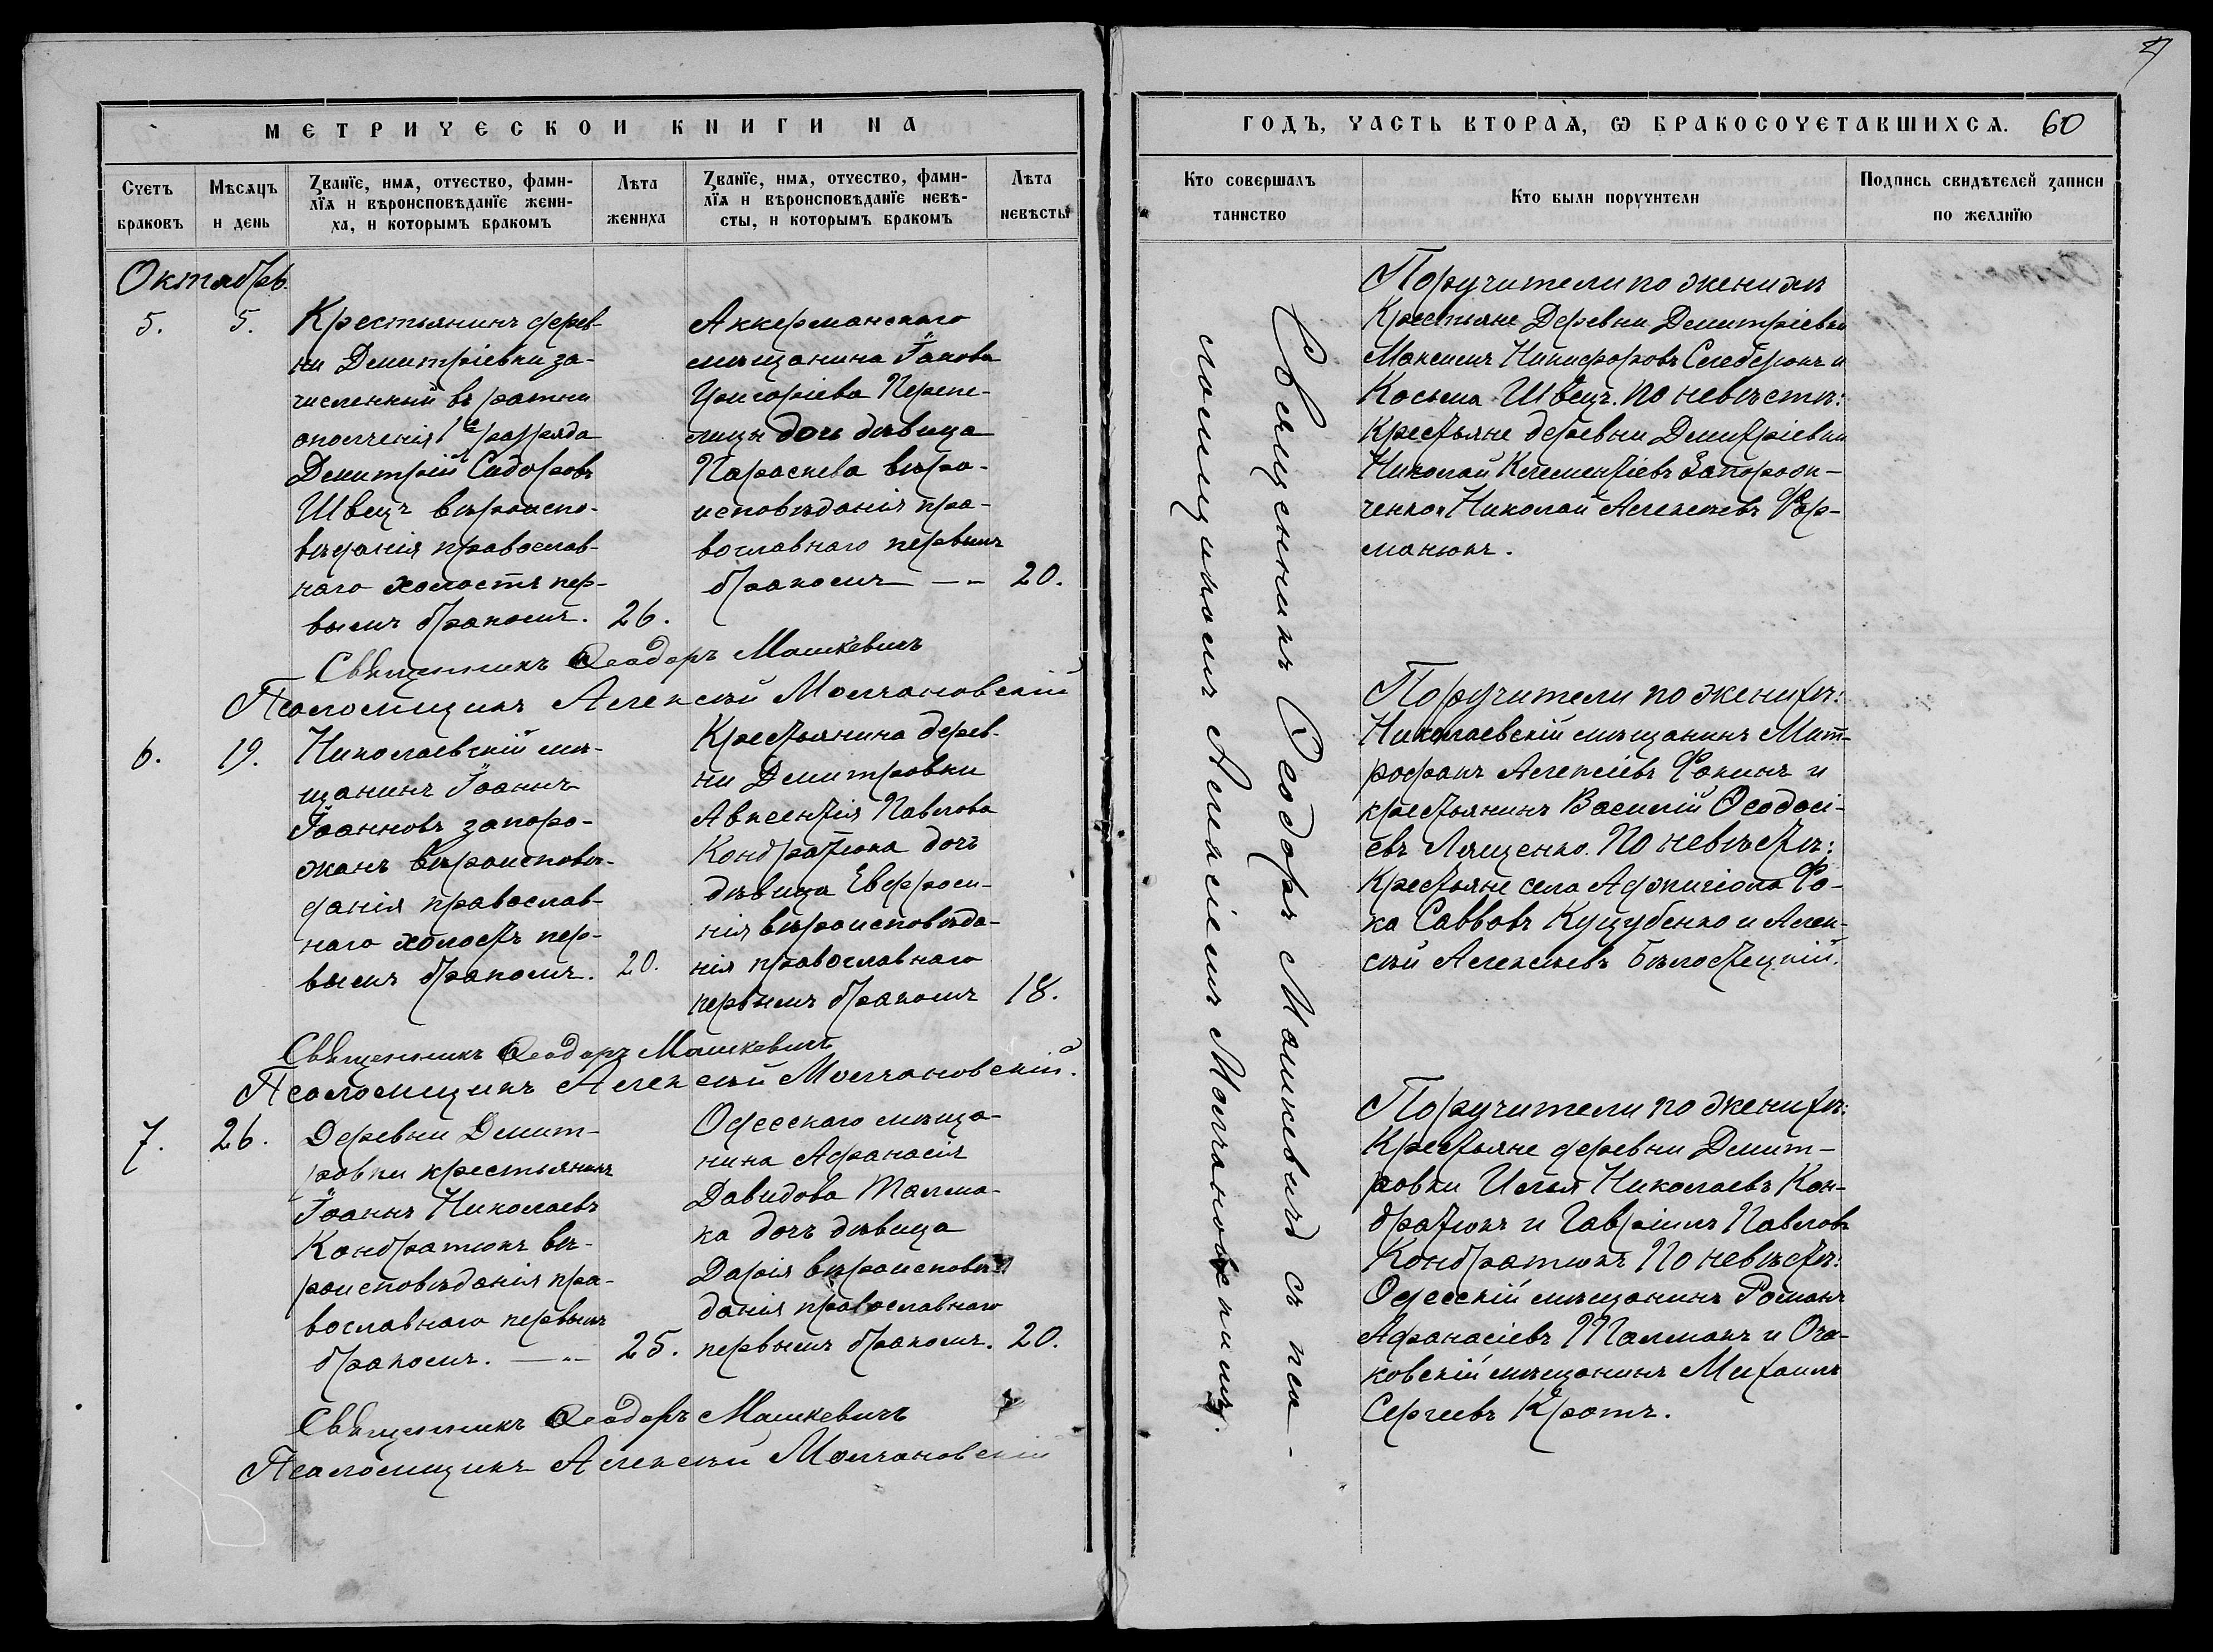 МЕТРИЧЕСКОИ КНИГИ НА
Счетъ браковъ
Мѣсяцъ и день
Званїе, имѧ, отчество, фами-
лїѧ и вѣроисповѣданїе жени-
ха, и которымъ бракомъ
Лѣта жениха
Званїе, имѧ, отчество, фами-
лїѧ и вѣроисповѣданїе невѣ-
сты, и которымъ бракомъ
Лѣта невѣсты
Октябрь
5.
5.
Крестьянинъ дерев-
ни Димитріевки за-
численный въ ратни
ополченія 1го разряда
Димитрій Сидоровъ
Швецъ вѣроиспо-
вѣданія православ-
наго холостъ пер-
вымъ бракомъ. 26.
Аккерманскаго
мѣщанина Іакова
Григоріева Перепе-
лицы дочь дѣвица
Параскева вѣро-
исповѣданія пра-
вославнаго первымъ
бракомъ — 20.
Священникъ Ѳеодоръ Машкевичъ
Псаломщикъ Алексѣй Молчановскій
6.
19.
Николаевскій мѣ-
щанинъ Іоаннъ
Іоанновъ запоро-
жанъ вѣроисповѣ-
данія православ-
наго холостъ пер-
вымъ бракомъ. 20.
Крестьянина дерев-
ни Димитровки
Авксентія Павлова
Кондратюка дочь
дѣвица Евфроси-
нія вѣроисповѣда-
нія православнаго
первымъ бракомъ 18.
Священникъ Ѳеодоръ Машкевичъ
Псаломщикъ Алексѣй Молчановскій.
7.
26.
Деревни Димит-
ровки крестьянинъ
Іоаннъ Николаевъ
Кондратюкъ вѣ-
роисповѣданія пра-
вославнаго первымъ
бракомъ. — 25.
Одесскаго мѣща-
нина Афанасія
Давидова Талма-
ка дочь дѣвица
Дарія вѣроисповѣ-
данія православнаго
первымъ бракомъ. 20.
Священникъ Ѳеодоръ Машкевичъ
Псаломщикъ Алексѣй Молчановскій
ГОДЪ, ЧАСТЬ ВТОРАѦ, Ѡ БРАКОСОЧЕТАВШИХСѦ. 60
Кто совершалъ таинство
Кто были поручители
Подпись свидѣтелей записи
по желанїю
Священникъ Ѳеодоръ Машкевичъ съ пса-
ломщикомъ Алексіемъ Молчановскимъ.
Поручители по женихѣ
Крестьяне Деревни Димитріевки
Максимъ Никифоровъ и
Косьма Швецъ. По невѣстѣ:
Крестьяне деревни Димитріевки
Николай Климентіевъ Запорож-
ченко и Николай Алексѣевъ Фур-
манюкъ.
Поручители по женихѣ:
Николаевскій мѣщанинъ Мит-
рофанъ Алексіевъ Фокинъ и
крестьянинъ Василій Ѳеодосі-
евъ Лященко. По невѣстѣ:
Крестьяне села Аджигіола Фо-
ка Саввовъ Куцубенко и Алек-
сѣй Алексѣевъ Бѣлостецкій.
Поручители по женихѣ:
Крестьяне деревни Димит-
ровки Илья Николаевъ Кон-
дратюкъ и Гавріилъ Павловъ
Кондратюкъ По невѣстѣ:
Одесскій мѣщанинъ Романъ
Афанасіевъ Талмакъ и Оча-
ковскій мѣщанинъ Михаилъ
Сергеевъ Кротъ.